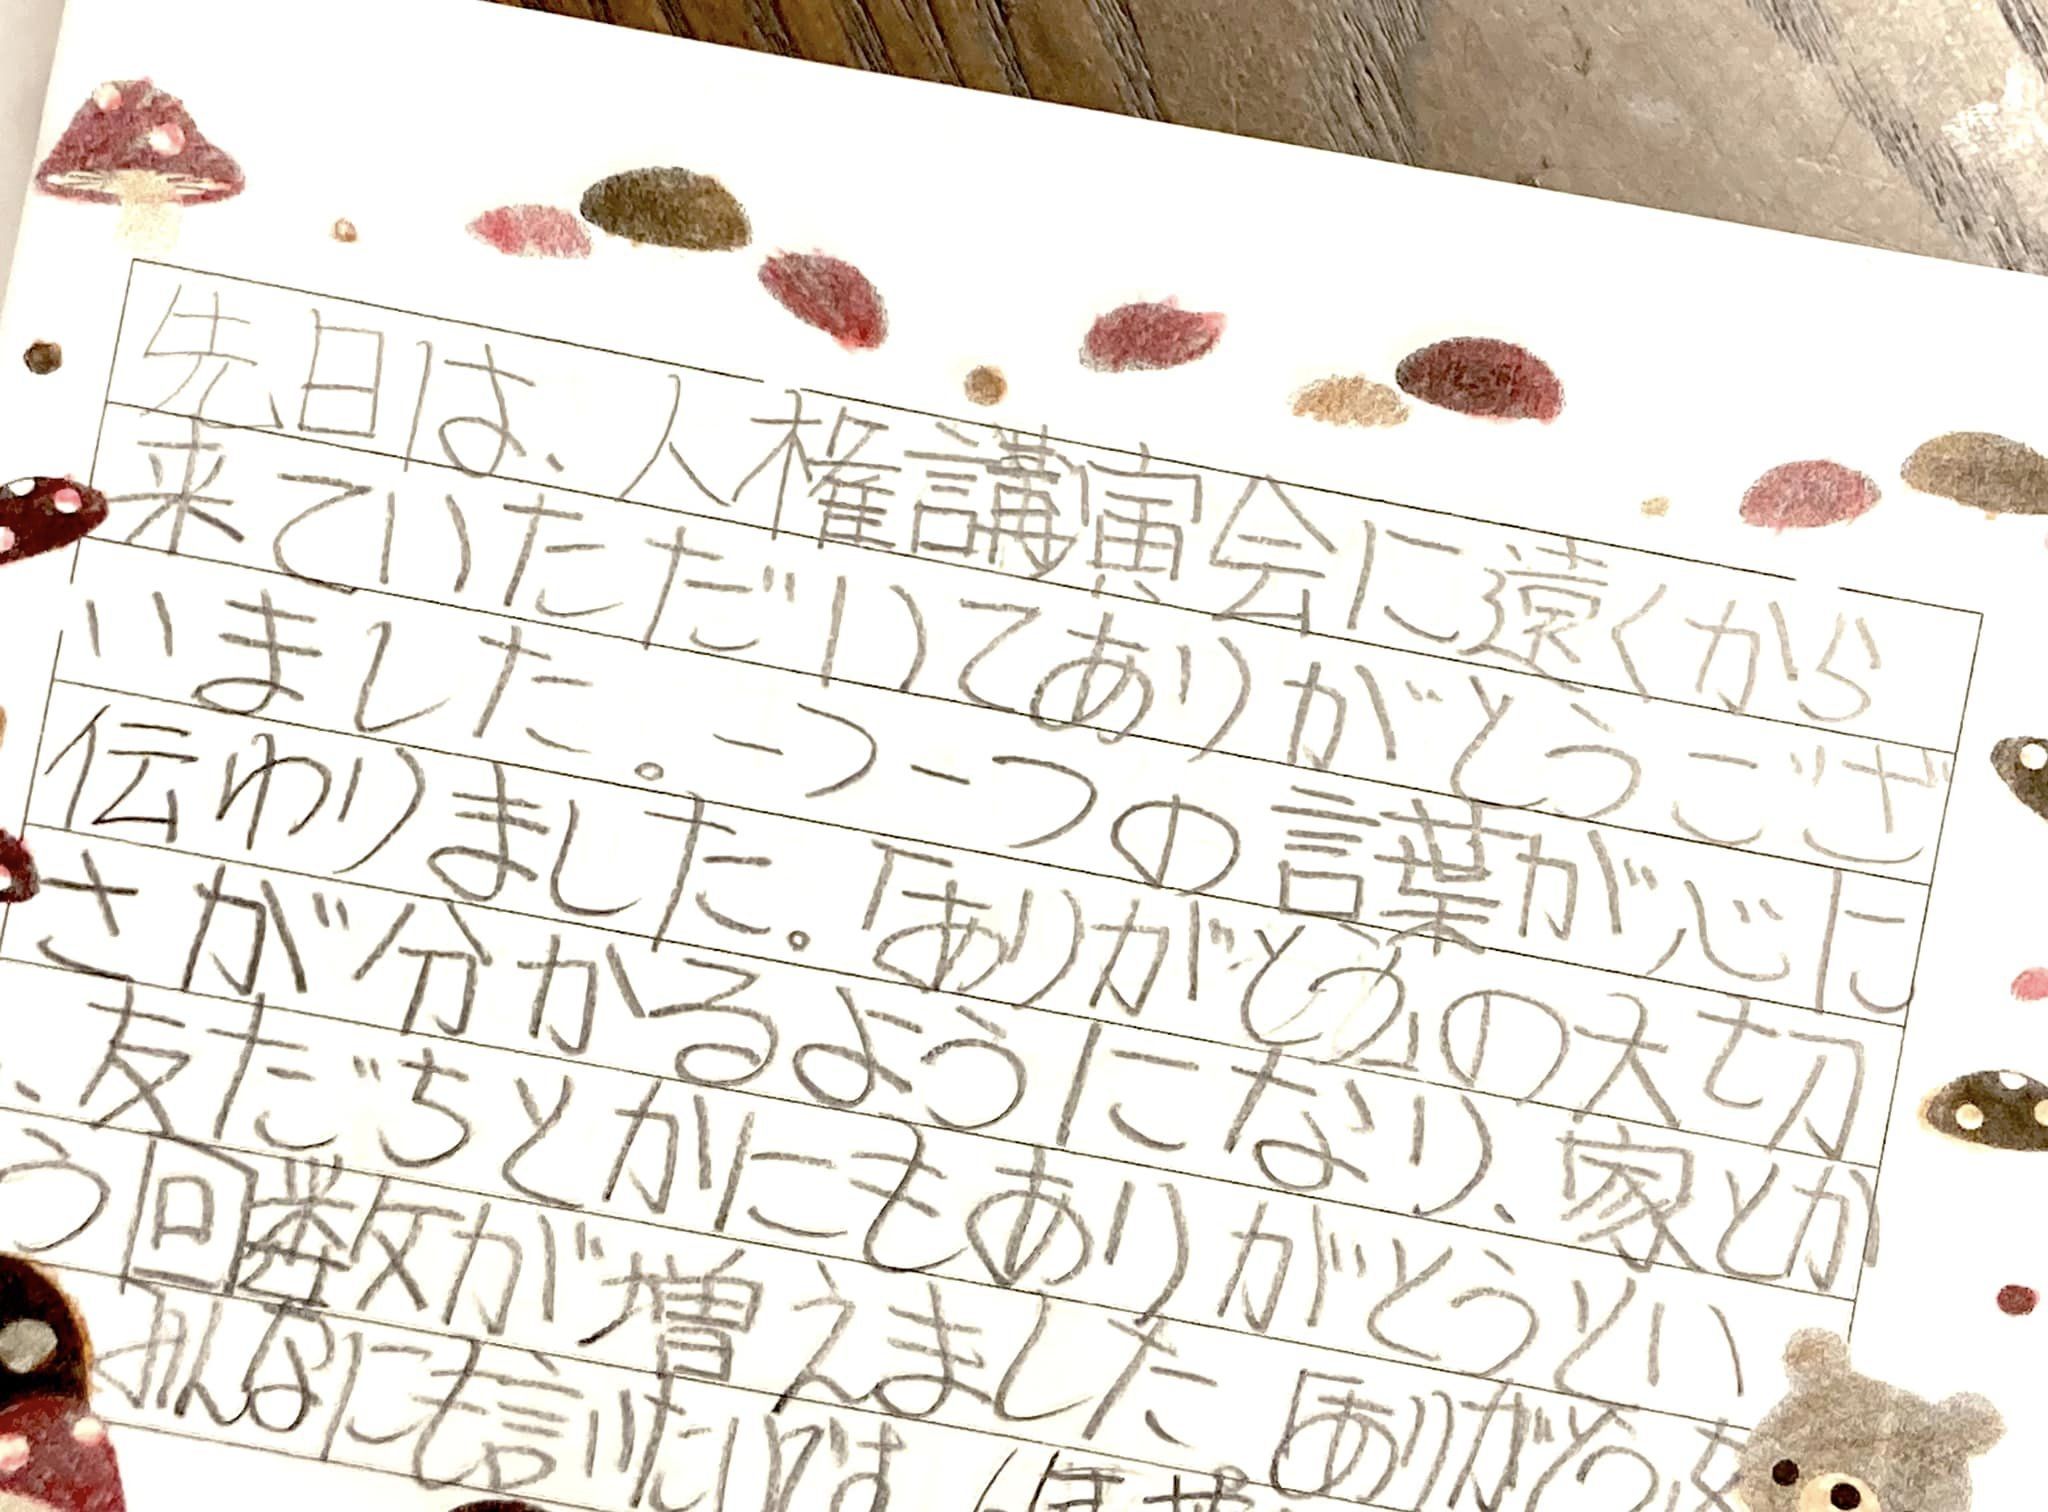 先日は、人権講演会に遠くから
来ていただいてありがとうござ
いました。一つ一つの言葉が心に
伝わりました。「ありがとう」の大切
さが分かるようになり、家とか
、友だちとかにもありがとうとい
う回数が増えました「ありがとう」を
みんなにも言いたいです